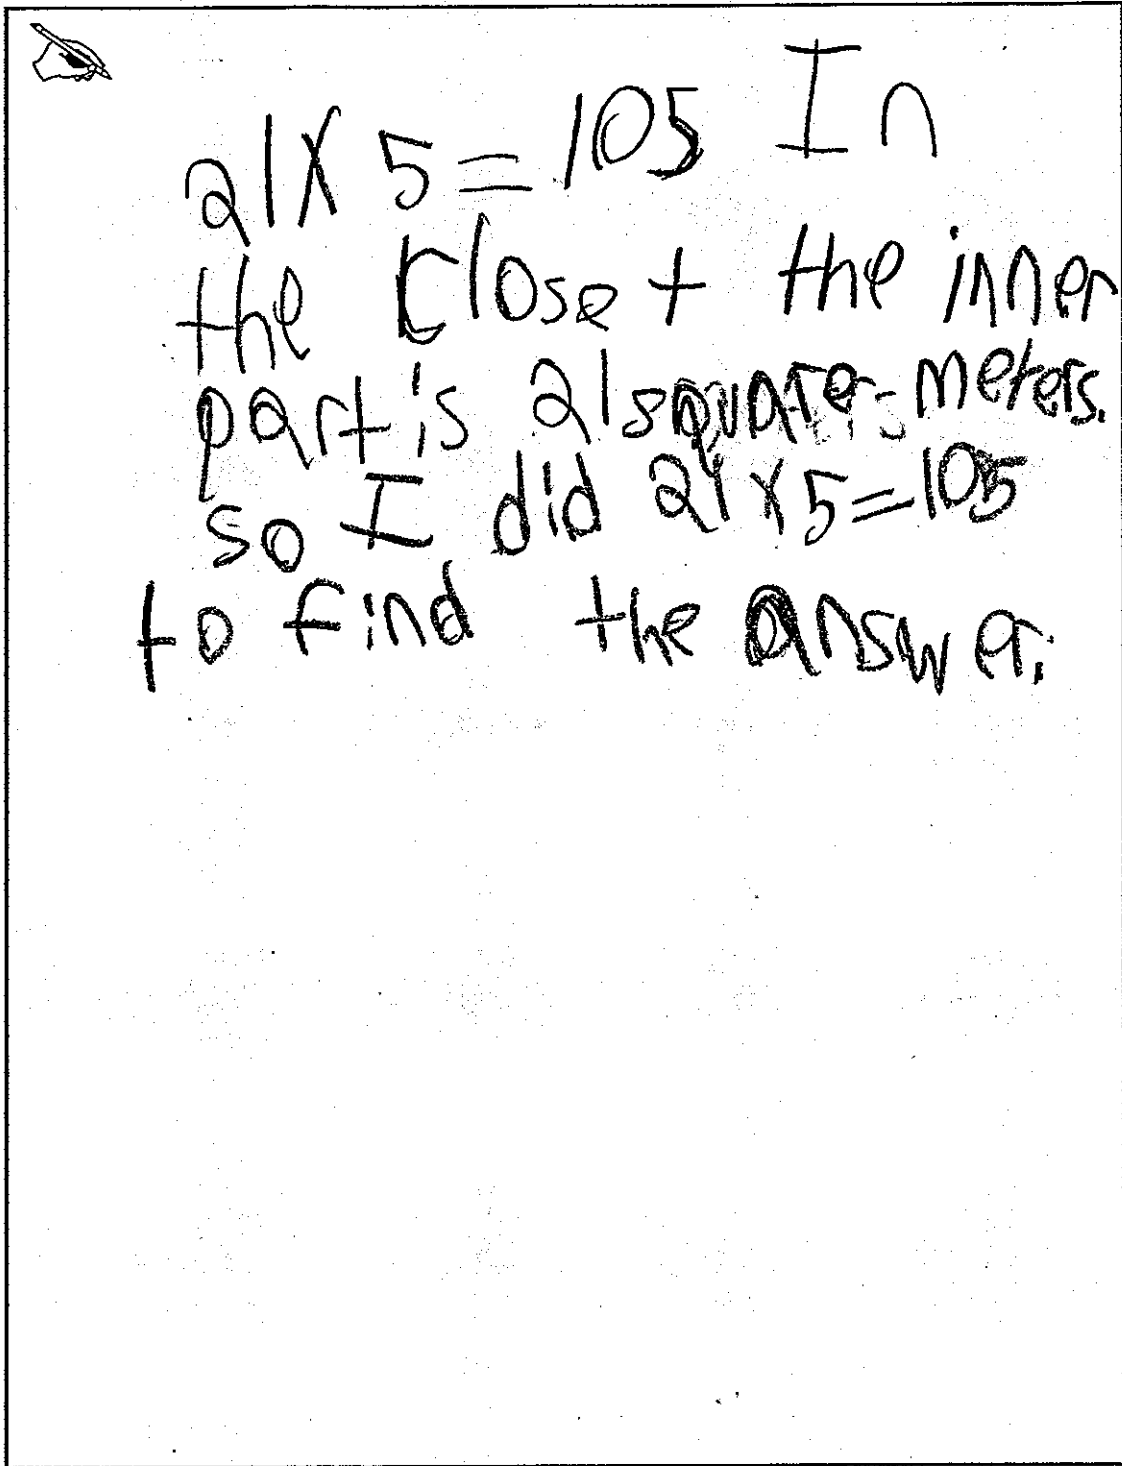 21 x 5 = 105 In
the closet the inner
part is 21 square meters.
so I did 21 x 5 = 105
to find the answer.